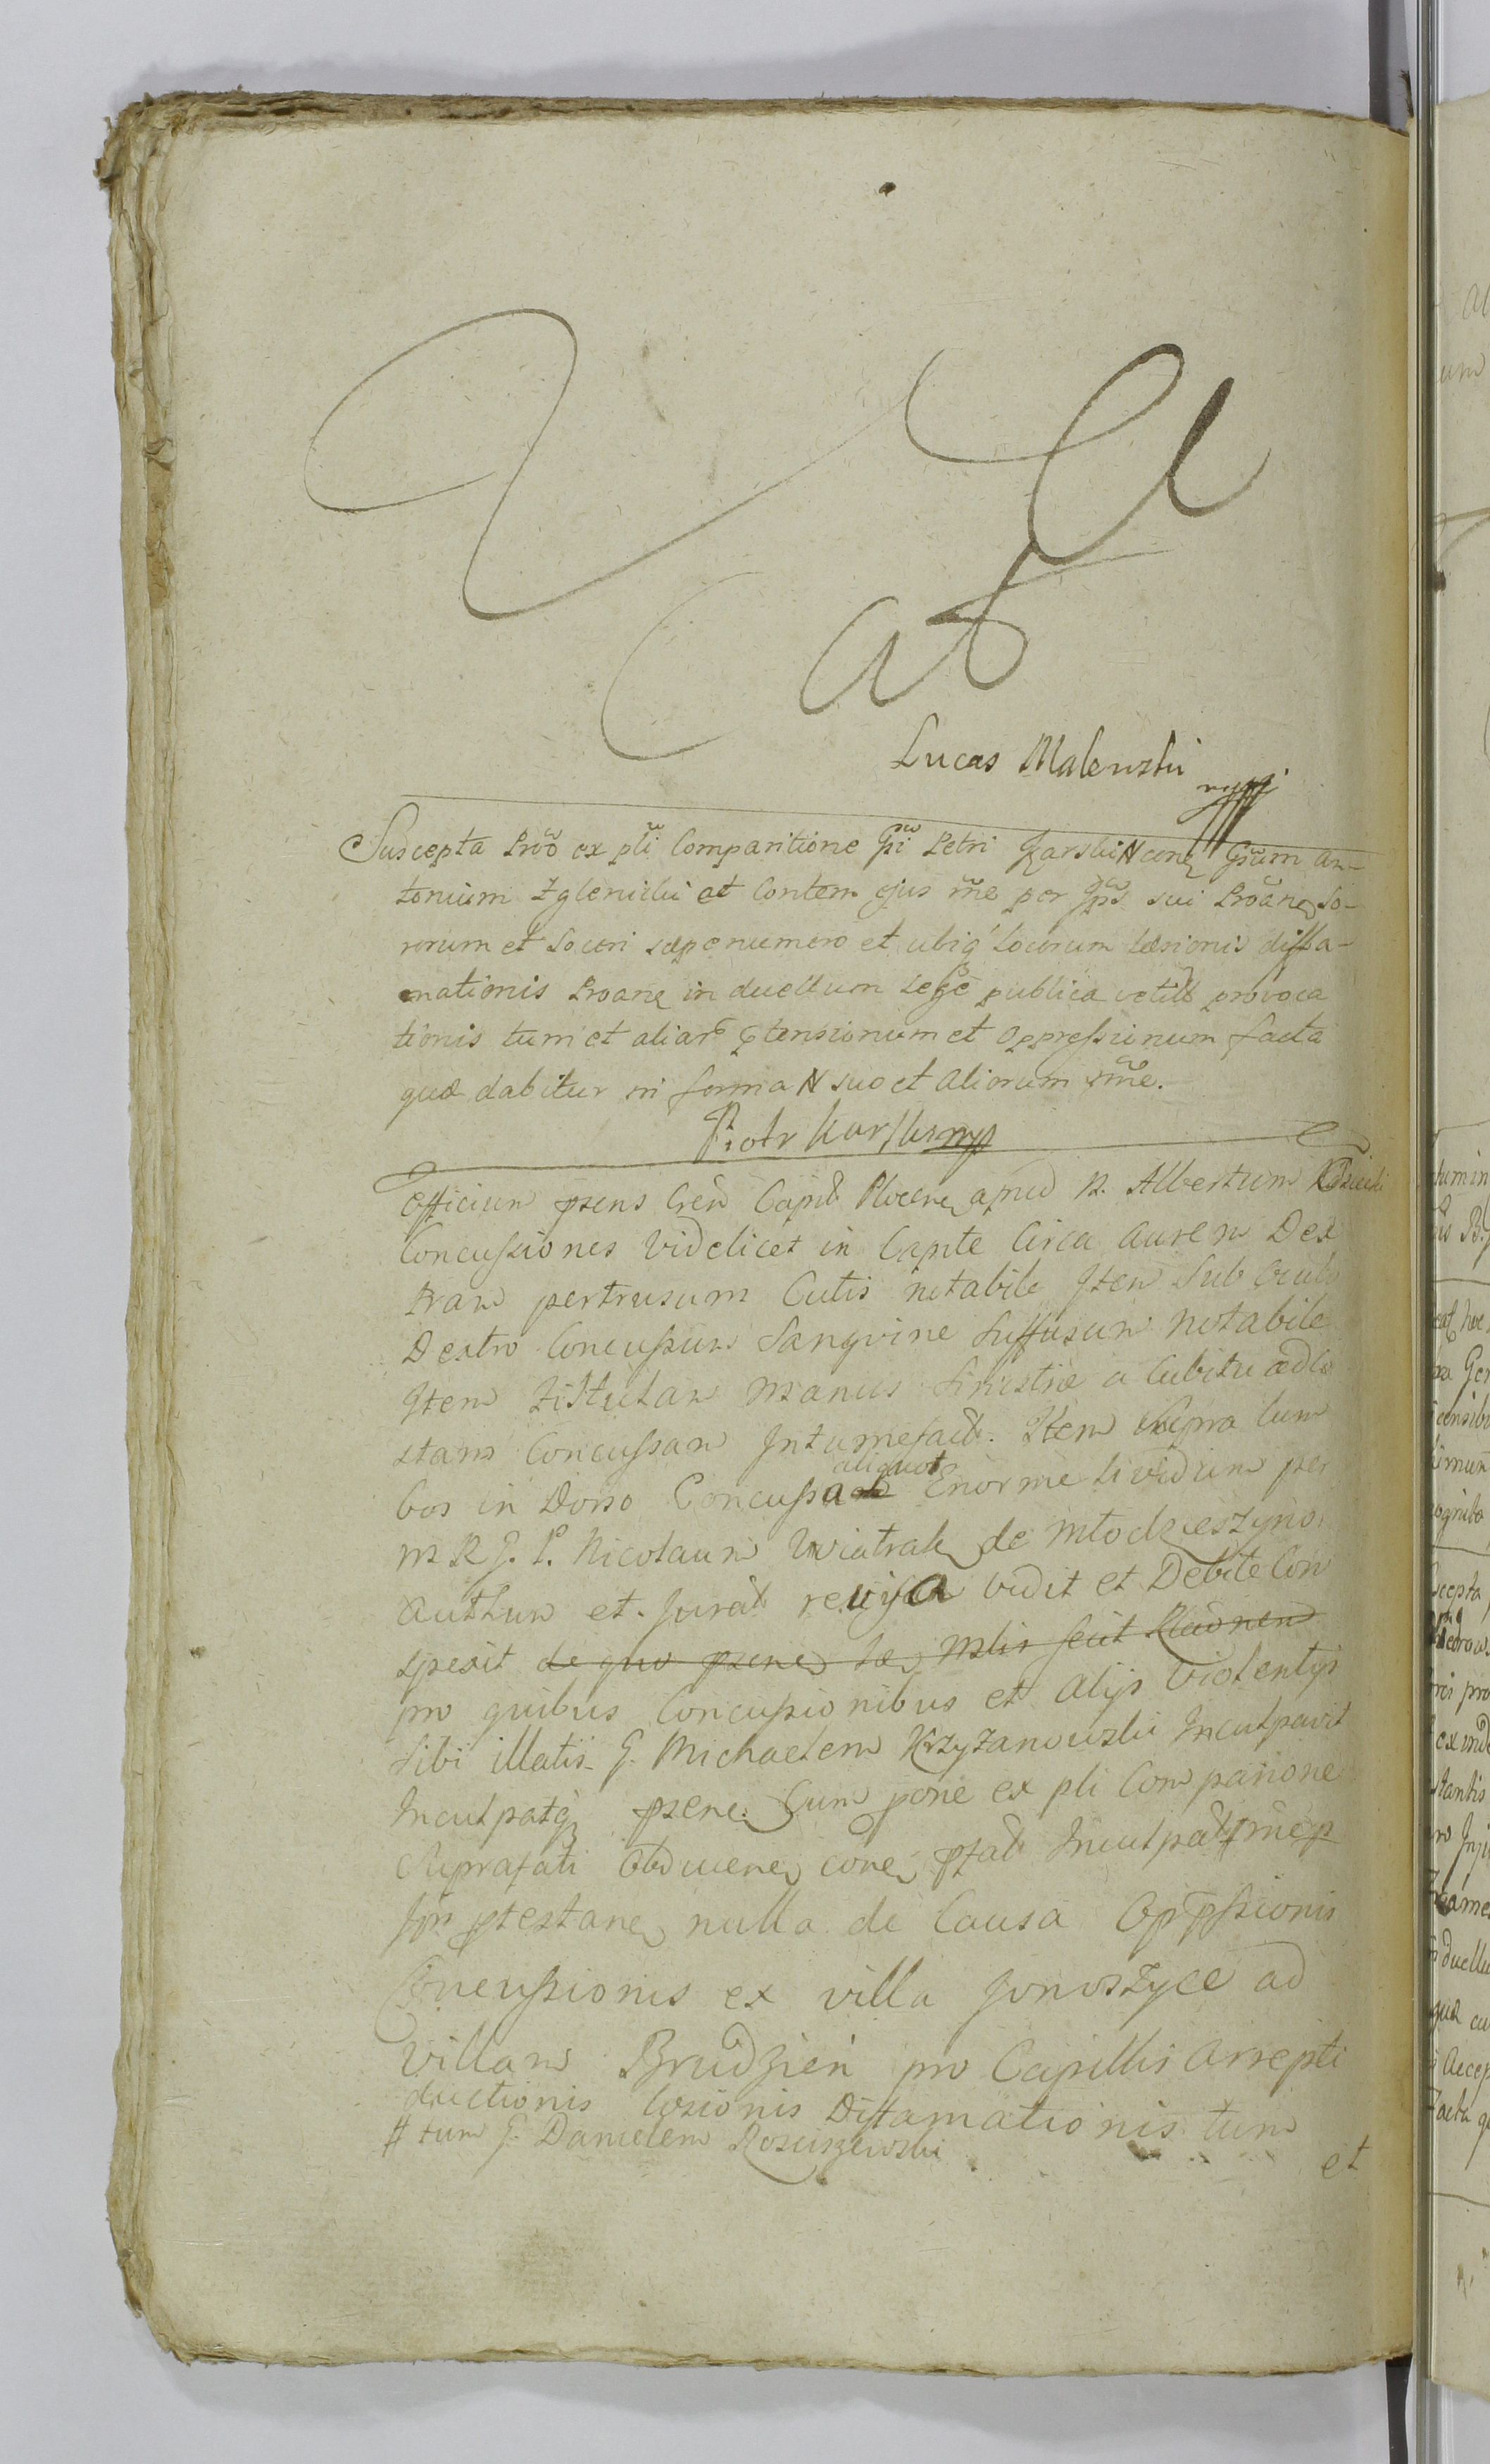 Lucas Malewski mpp
Suscepta Prõo ex pli Comparitione Gsi Petri Karski N conẽ Gsum An-
tonium Zglenicki et Contem ejus rñe per Ipš sui Proãne so-
rorum et Soceri sæpenumero et ubiq' locorum læsionis diffa-
mationis Proane in duellum Lege publica vetitt provoca
tionis tum et aliar ptensionum et oppressionum facta
quæ dabitur in forma N suo et aliorum rñe.
Piotr Karski mp
Officium psens Cren Capit Plocen apud N. Albertum
Concussiones videlicet in Capite Circa aurem Dex
tram pertrusum Cutis notabile Item Sub Oculo
Dextro Concussum Sangvine Suffusum notabile
Item fistulam manus Sinistræ a Cubitu ad Co
stam Concussam Intumefact. Item Supra Lum
bos in Dorso Concussa aliquot Enorme lividum per
M R J. P. Nicolaum Wiatrak de Młodzieszyno
Authum et Jurat revisa vidit et Debite Con
spexit de quo psene Lae Mstis fecit Rlaonem
pro quibus Concussionibus et alijs Violentijs
Sibi illatis G. Michaelem Krzyzanowski Inculpavit
Inculpatq psene. Cum pone ex pli Comparione
Supra fati Obducene cone pfat Inculpat
ptestane nulla de Causa Oppssionis
Concussionis ex villa Jonoszyce ad
villam Brudzień pro Capillis arrepti
ductionis læsionis Difamationis tum
# tum G. Danielem Rosciszewski
et